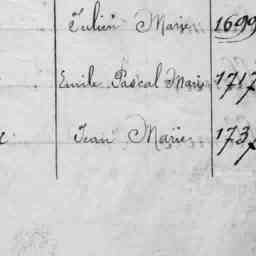 Julien Marie 1699
Emile Pascal Marie 1717
Jean Marie 173